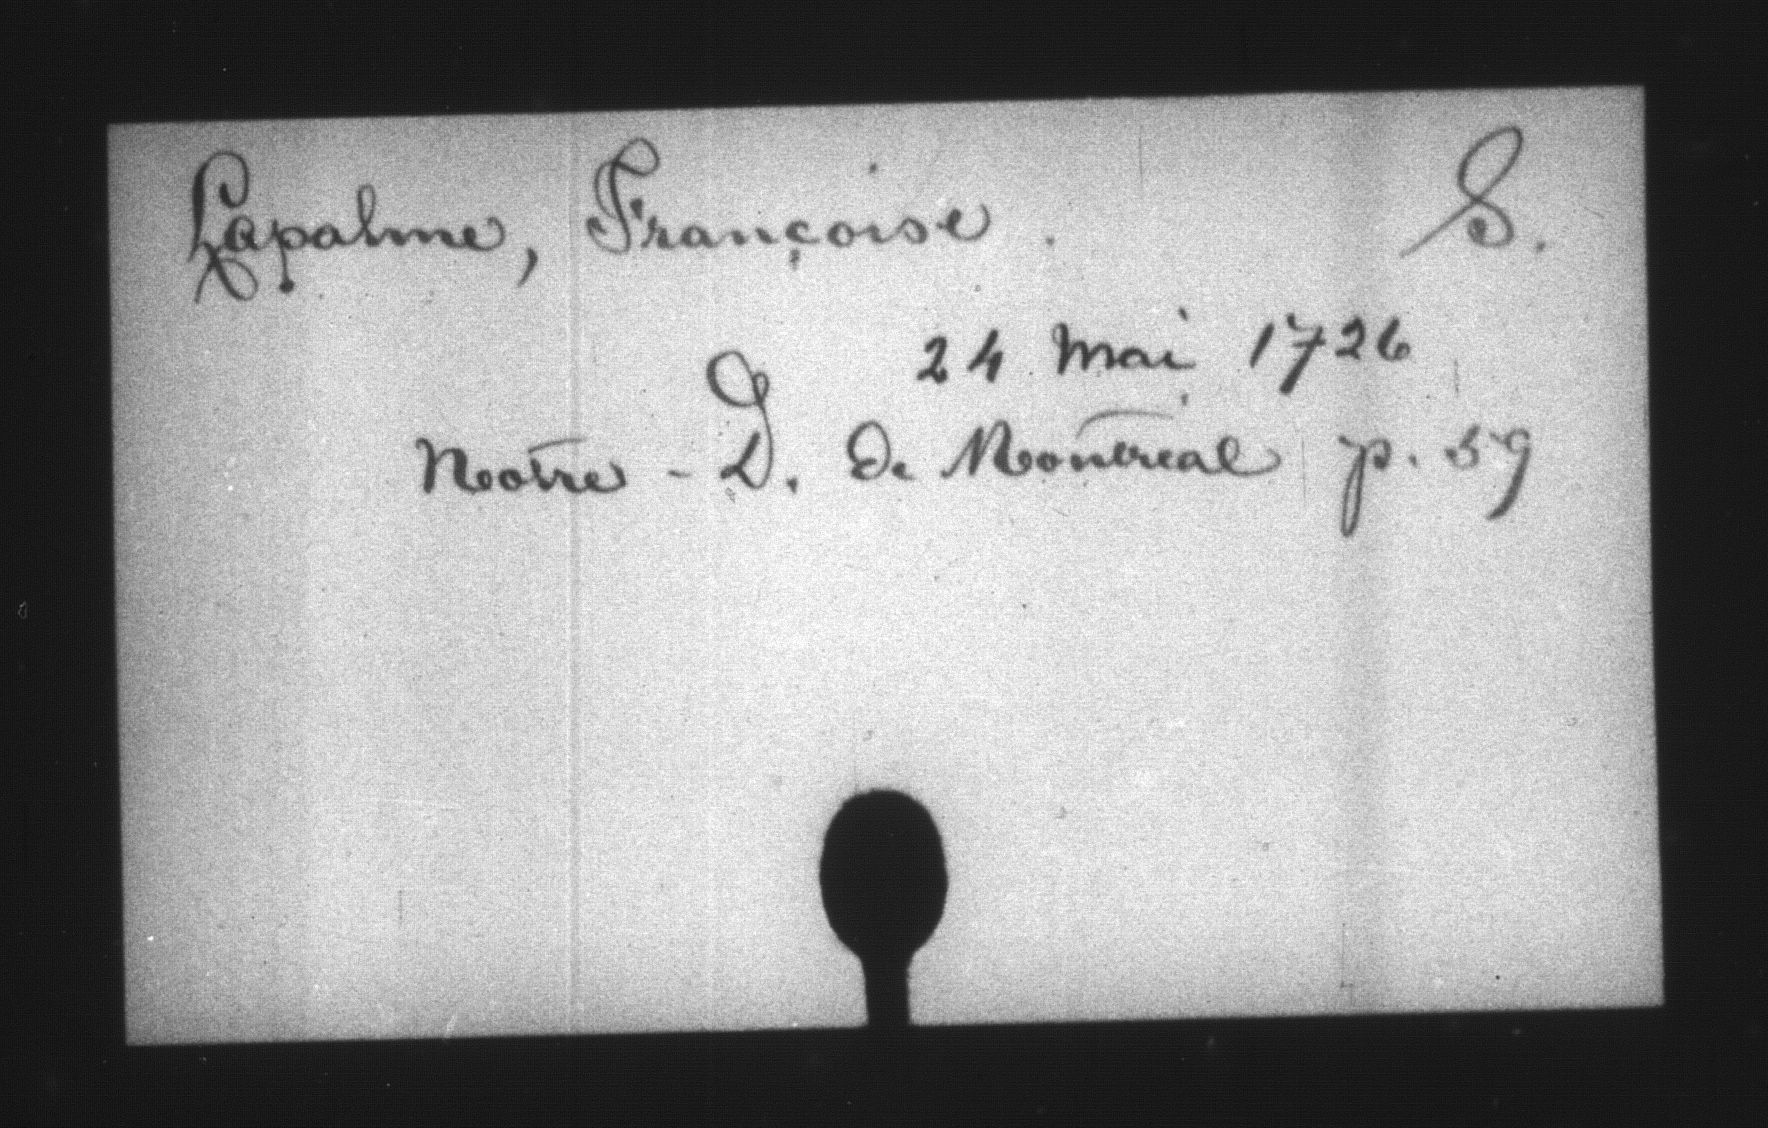 Lapalme, Françoise. S.
24 Mai 1726
Notre-D. de Montréal p. 59